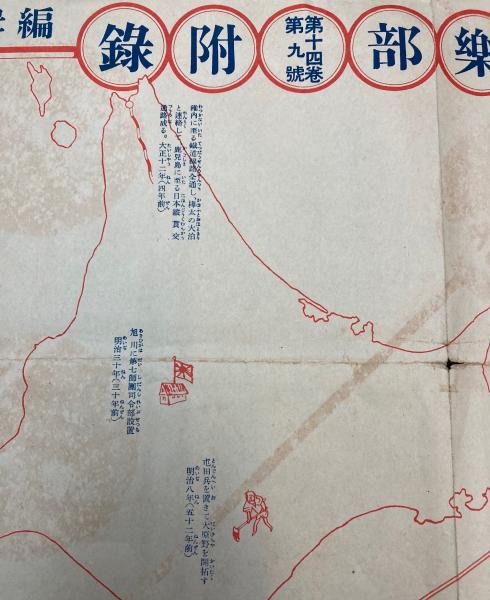 樂部
第十四卷
第九號
附錄
編
稚内に至る鐵道線路全通し、樺太の大泊
と連絡して鹿兒島に至る日本縱貫交
通路成る。大正十二年(四年前)
旭川に第七師團司令部設置
明治三十年(三十年前)
屯田兵を置きて大原野を開拓す
明治八年(五十二年前)